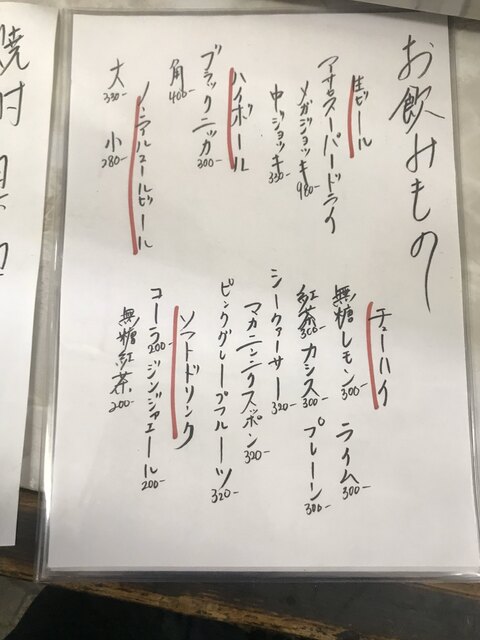 お飲みもの
生ビール
アサヒスーパードライ
メガジョッキ 980-
中ジョッキ 330-
ハイボール
ブラックニッカ 300-
角 400-
ノンアルコールビール
大 330- 小 280-
チューハイ
無糖レモン 300- ライム 300-
紅茶 300- カシス 300- プレーン 300-
シークァーサー 320-
マカニンニクスッポン 320-
ピンクグレープフルーツ 320-
ソフトドリンク
コーラ 200- ジンジャエール 200-
無糖紅茶 200-